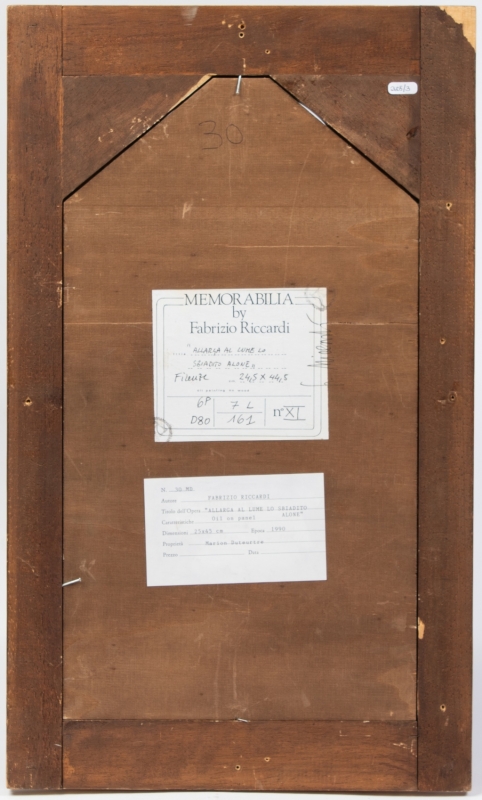 30
MEMORABILIA
by
Fabrizio Riccardi
"ALLARGA AL LUME LO
SBIADITO ALONE"
Firenze cm 24,5 X 44,5
6P 7 L n° XI
D80 161
Autore FABRIZIO RICCARDI
Titolo dell'Opera "ALLARGA AL LUME LO SBIADITO
ALONE"
Oil on panel
Dimensioni 25x45 cm Epoca 1990
Proprietà
Prezzo Data